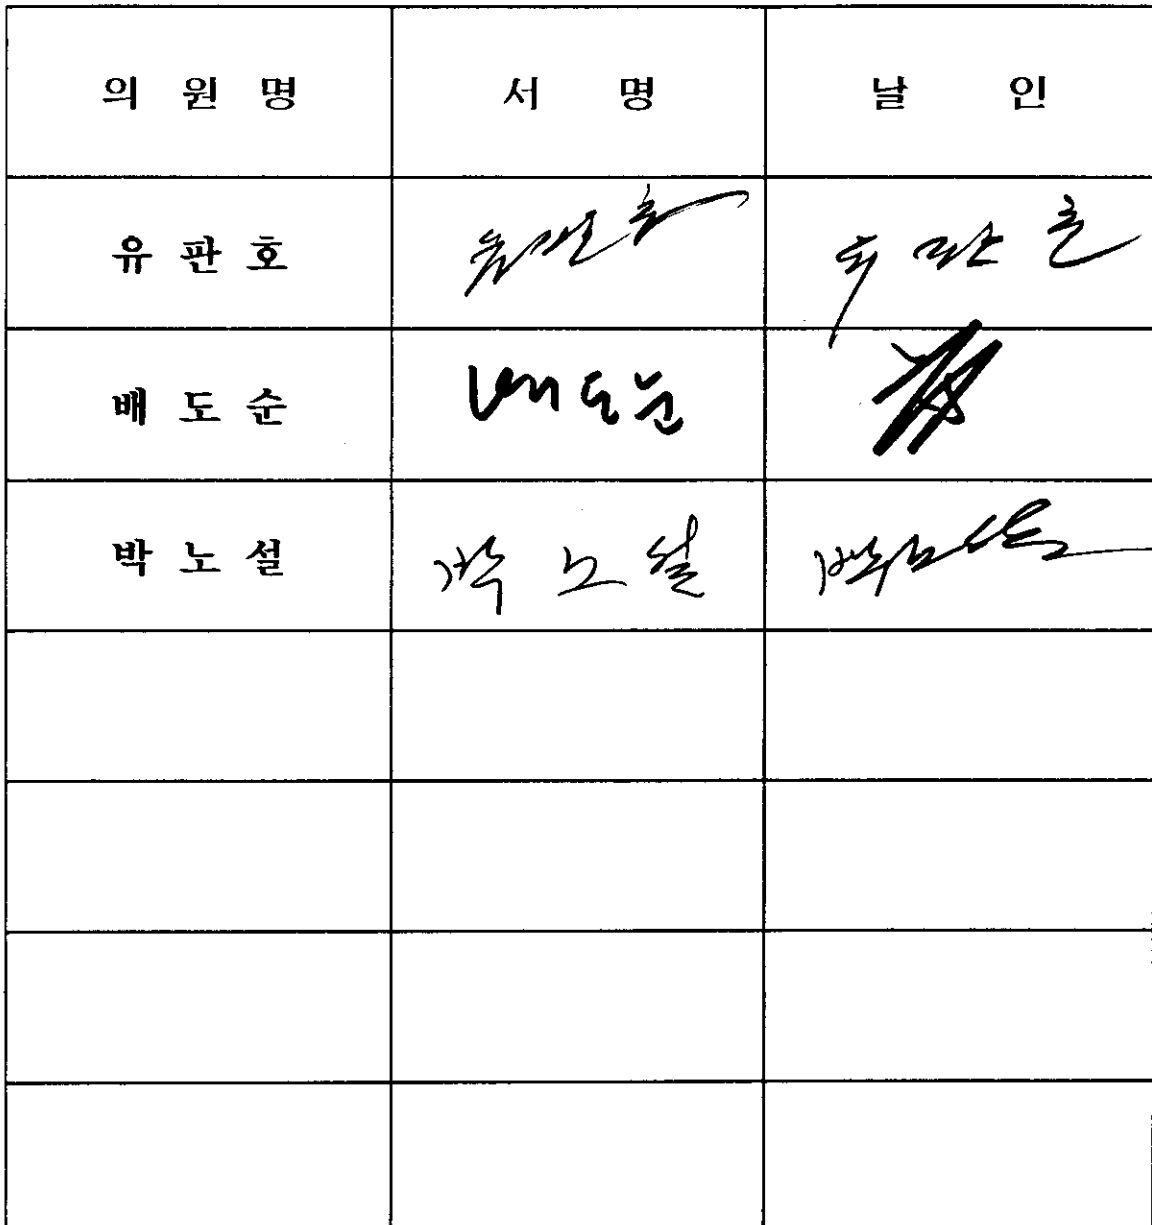 의 원 명 서 명 날 인
유 판 호 유판호 유판호
배 도 순 배도순
박 노 설 박노설 박노설